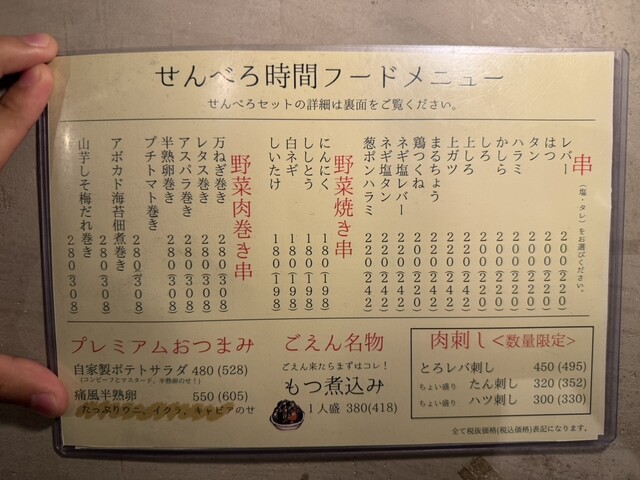 せんべろ時間フードメニュー
せんべろセットの詳細は裏面をご覧ください。
串(塩・タレ)をお選びください。
レバー 200(220)
はつ 200(220)
タン 200(220)
ハラミ 200(220)
かしら 200(220)
しろ 200(220)
上しろ 220(242)
上ガツ 220(242)
まるちょう 220(242)
鶏つくね 220(242)
ネギ塩レバー 220(242)
ネギ塩タン 220(242)
葱ポンハラミ 220(242)
野菜焼き串
にんにく 180(198)
ししとう 180(198)
白ネギ 180(198)
しいたけ 180(198)
野菜肉巻き串
万ねぎ巻き 280(308)
レタス巻き 280(308)
アスパラ巻き 280(308)
半熟卵巻き 280(308)
プチトマト巻き 280(308)
アボカド海苔佃煮巻き 280(308)
山芋しそ梅だれ巻き 280(308)
プレミアムおつまみ
自家製ポテトサラダ 480(528)
(コンビーフとマスタード、半熟卵のせ!)
痛風半熟卵 550(605)
たっぷりウニ、イクラ、キャビアのせ
ごえん名物
ごえん来たらまずはコレ!
もつ煮込み
1人盛 380(418)
肉刺し<数量限定>
とろレバ刺し 450(495)
ちょい盛り たん刺し 320(352)
ちょい盛り ハツ刺し 300(330)
全て税抜価格(税込価格)表記になります。